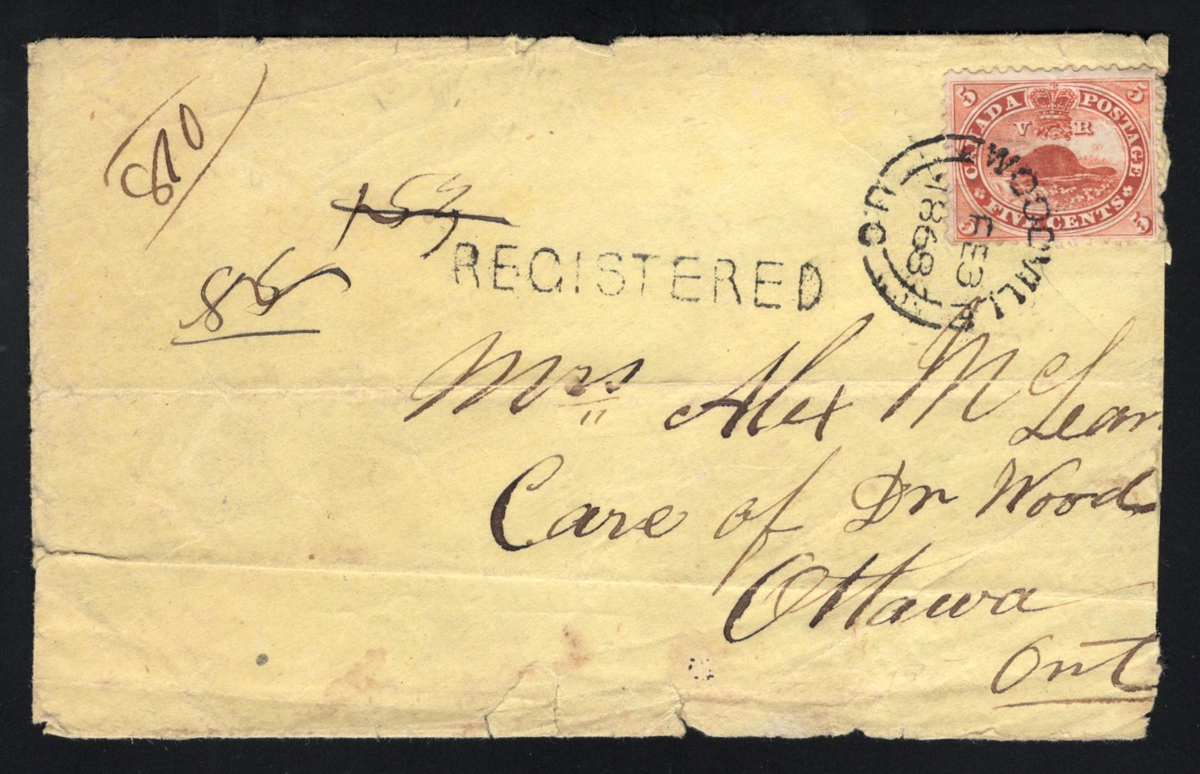 870
159
85
REGISTERED
5 CANADA POSTAGE 5
V R
5 FIVE CENTS 5
WOODVILLE
FEB
1868
U.C
Mrs Alex McLean
Care of Dr Wood
Ottawa
Ont